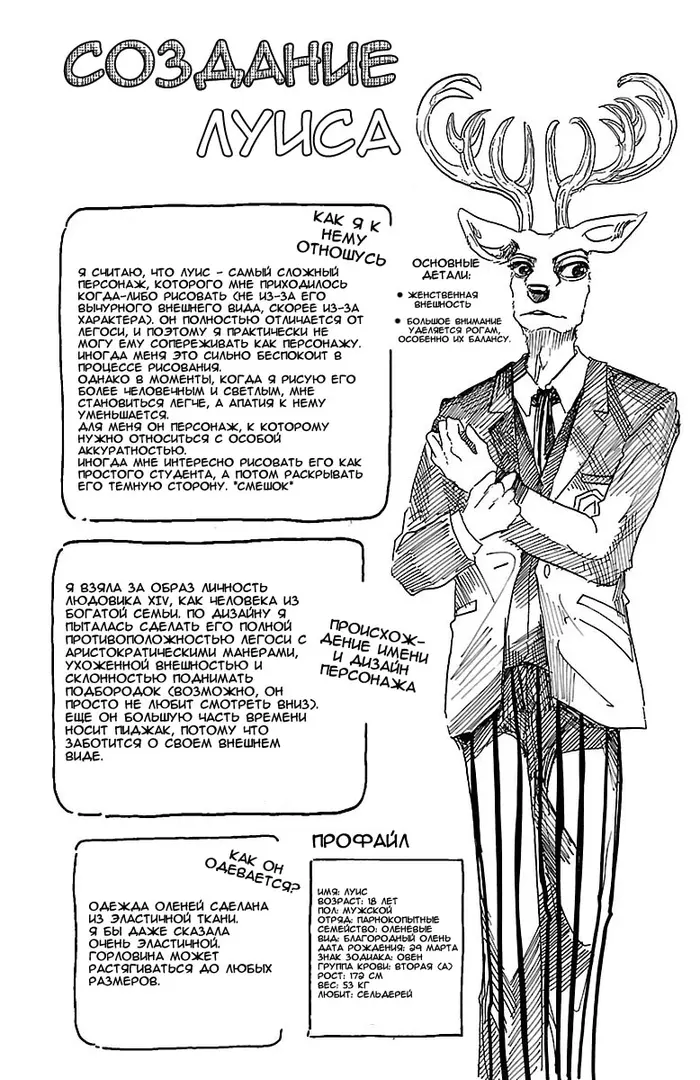 СОЗДАНИЕ
ЛУИСА
КАК Я К
НЕМУ
ОТНОШУСЬ
Я СЧИТАЮ, ЧТО ЛУИС - САМЫЙ СЛОЖНЫЙ
ПЕРСОНАЖ, КОТОРОГО МНЕ ПРИХОДИЛОСЬ
КОГДА-ЛИБО РИСОВАТЬ (НЕ ИЗ-ЗА ЕГО
ВЫЧУРНОГО ВНЕШНЕГО ВИДА, СКОРЕЕ ИЗ-ЗА
ХАРАКТЕРА). ОН ПОЛНОСТЬЮ ОТЛИЧАЕТСЯ ОТ
ЛЕГОСИ, И ПОЭТОМУ Я ПРАКТИЧЕСКИ НЕ
МОГУ ЕМУ СОПЕРЕЖИВАТЬ КАК ПЕРСОНАЖУ.
ИНОГДА МЕНЯ ЭТО СИЛЬНО БЕСПОКОИТ В
ПРОЦЕССЕ РИСОВАНИЯ.
ОДНАКО В МОМЕНТЫ, КОГДА Я РИСУЮ ЕГО
БОЛЕЕ ЧЕЛОВЕЧНЫМ И СВЕТЛЫМ, МНЕ
СТАНОВИТЬСЯ ЛЕГЧЕ, А АПАТИЯ К НЕМУ
УМЕНЬШАЕТСЯ.
ДЛЯ МЕНЯ ОН ПЕРСОНАЖ, К КОТОРОМУ
НУЖНО ОТНОСИТЬСЯ С ОСОБОЙ
АККУРАТНОСТЬЮ.
ИНОГДА МНЕ ИНТЕРЕСНО РИСОВАТЬ ЕГО КАК
ПРОСТОГО СТУДЕНТА, А ПОТОМ РАСКРЫВАТЬ
ЕГО ТЕМНУЮ СТОРОНУ. "СМЕШОК"
ОСНОВНЫЕ
ДЕТАЛИ:
• ЖЕНСТВЕННАЯ
ВНЕШНОСТЬ
• БОЛЬШОЕ ВНИМАНИЕ
УДЕЛЯЕТСЯ РОГАМ,
ОСОБЕННО ИХ БАЛАНСУ.
Я ВЗЯЛА ЗА ОБРАЗ ЛИЧНОСТЬ
ЛЮДОВИКА XIV, КАК ЧЕЛОВЕКА ИЗ
БОГАТОЙ СЕМЬИ. ПО ДИЗАЙНУ Я
ПЫТАЛАСЬ СДЕЛАТЬ ЕГО ПОЛНОЙ
ПРОТИВОПОЛОЖНОСТЬЮ ЛЕГОСИ С
АРИСТОКРАТИЧЕСКИМИ МАНЕРАМИ,
УХОЖЕННОЙ ВНЕШНОСТЬЮ И
СКЛОННОСТЬЮ ПОДНИМАТЬ
ПОДБОРОДОК (ВОЗМОЖНО, ОН
ПРОСТО НЕ ЛЮБИТ СМОТРЕТЬ ВНИЗ).
ЕЩЕ ОН БОЛЬШУЮ ЧАСТЬ ВРЕМЕНИ
НОСИТ ПИДЖАК, ПОТОМУ ЧТО
ЗАБОТИТСЯ О СВОЕМ ВНЕШНЕМ
ВИДЕ.
ПРОИСХОЖ-
ДЕНИЕ ИМЕНИ
И ДИЗАЙН
ПЕРСОНАЖА
КАК ОН
ОДЕВАЕТСЯ?
ОДЕЖДА ОЛЕНЕЙ СДЕЛАНА
ИЗ ЭЛАСТИЧНОЙ ТКАНИ.
Я БЫ ДАЖЕ СКАЗАЛА
ОЧЕНЬ ЭЛАСТИЧНОЙ.
ГОРЛОВИНА МОЖЕТ
РАСТЯГИВАТЬСЯ ДО ЛЮБЫХ
РАЗМЕРОВ.
ПРОФАЙЛ
ИМЯ: ЛУИС
ВОЗРАСТ: 18 ЛЕТ
ПОЛ: МУЖСКОЙ
ОТРЯД: ПАРНОКОПЫТНЫЕ
СЕМЕЙСТВО: ОЛЕНЕВЫЕ
ВИД: БЛАГОРОДНЫЙ ОЛЕНЬ
ДАТА РОЖДЕНИЯ: 29 МАРТА
ЗНАК ЗОДИАКА: ОВЕН
ГРУППА КРОВИ: ВТОРАЯ (А)
РОСТ: 172 СМ
ВЕС: 53 КГ
ЛЮБИТ: СЕЛЬДЕРЕЙ